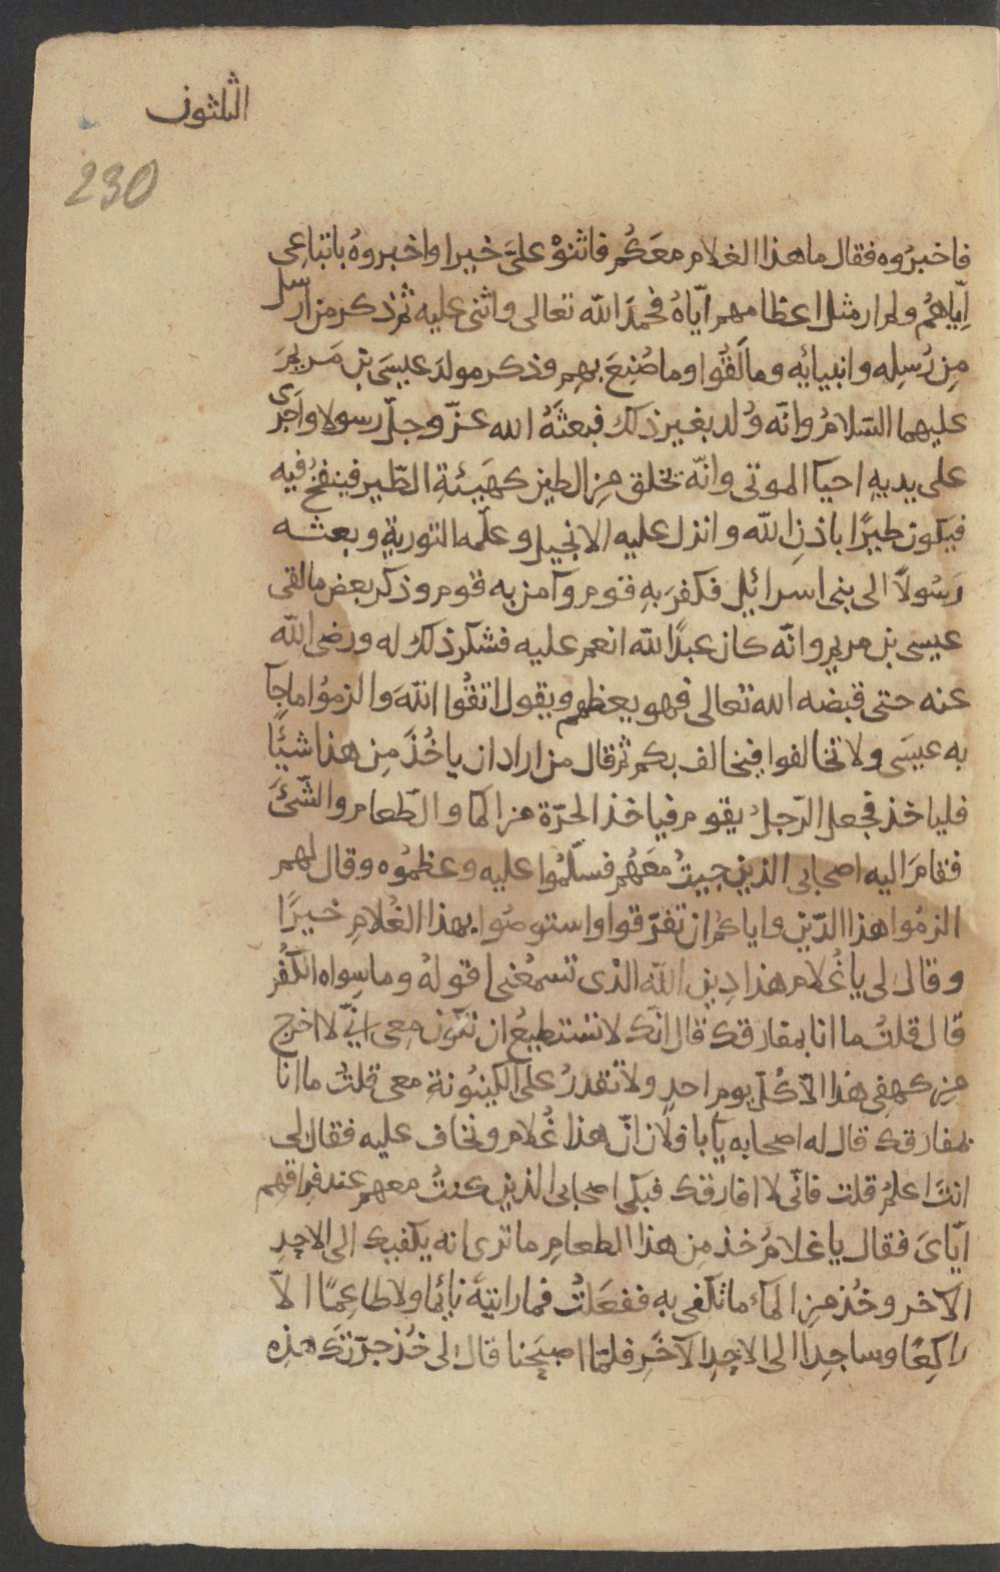 الثلثون
230
فاخبرُوه فقال ما هذا الغلام معَكُم فاثنوْ علىَّ خيرا واخبروهُ باتباعِى
اِيّاهُم ولم ار مثل اعظامهم ايّاهُ فحمدَ الله تعالى واثنى عليه ثم ذكر من ارسل
مِن رُسِله وانبيائِه وما لَقُوا وما صُنِعَ بهِم وذكر مولدَ عيسَى بن مَريمَ
عليهما السّلامُ وانّه وُلد بغير ذلك فبعثَهُ الله عزّ وجلّ رسولا واَجرى
على يديهِ احيآ الموتى وانّه يخلق مِن الطين كهَيئةِ الطّيرِ فينفخُ فيه
فيكون طيرًا باذنِ الله وانزل عليه الانجيل وعلّمه التوريةَ وبعثه
رَسُولاً الى بنى اسرائيل فكفرَ بهِ قوم وآمن به قوم وذكر بعض ما لقى
عيسى بن مريم وانّه كان عبدًا لله انعم عليه فشكر ذلك له ورضى الله
عنه حتى قبضه الله تعالى فهو يعظهم ويقول اتقُوا اللهَ والزمُوا ما جآ
به عيسَى ولا تخالفوا فيخالف بكم ثم قال من اراد ان ياخُذَ مِن هذا شيئًا
فلياخذ فجعل الرّجلُ يقوم فياخذ الجرّة من المآ والطّعام والشّئَ
فقامَ اليه اصحابى الذين جيتُ معَهُم فسلّمُوا عليه وعظمُوه وقال لهم
الزمُوا هذا الدّين واياكُم ان تفرّقوا واستوصُوا بهذا الغُلامِ خيرًا
وقال لى يا غُلام هذا دِين الله الذى تسمعُنى اقولهُ وما سِواه الكُفُر
قال قلتُ ما انا بمفارقك قال انّك لا تستطيعُ ان تكون معِى اِنّى لا اخرج
مِن كهفى هذا الاّ كُلّ يوم احد ولا تقدرُ على الكينُونة معى قلتُ ما انا
بمفارقك قال له اصحابه يآ با فلان انّ هذا غُلام ونخاف عليه فقال لى
انتَ اعلمُ قلت فانّى لا افارقك فبكى اصحابى الذين كنتُ معهم عند فراقِهم
ايّاىَ فقال يا غلامُ خذ مِن هذا الطعامِ ما ترى انه يكفيك الى الاحِد
الآخر وخُذ مِن المآء ما تكفى بهِ ففعَلتُ فما رايتهُ نائِما ولا طاعِمًا الاّ
راكِعًا وساجِدا الى الاحِد الآخَرِ فلمّا اصبَحنا قال لى خُذ جرّتكَ هذه